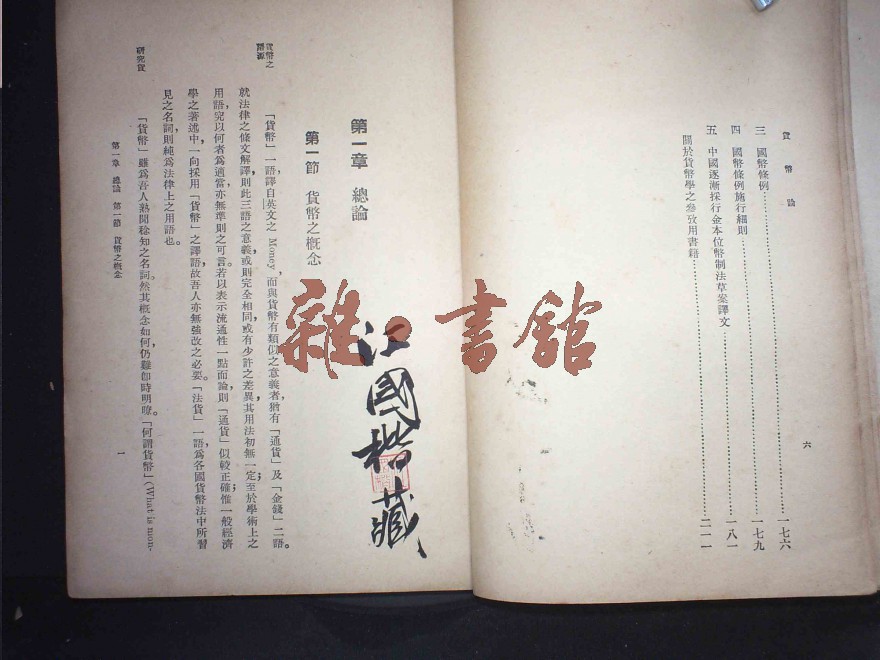 貨幣論
三 國幣條例……一七六
四 國幣條例施行細則……一七九
五 中國逐漸採行金本位幣制法草案譯文……一八一
關於貨幣學之參攷用書籍……二一一
六
江國楷藏
雜·書館
第一章 總論
第一節 貨幣之概念
貨幣之
「貨幣」一語，譯自英文之Money，而與貨幣有類似之意義者，尚有「通貨」及「金錢」二語。
就法律之條文解譯，則此三語之意義，或則完全相同，或有少許之差異，其用法初無一定；至於學術上之
用語，究以何者爲適當，亦無準則之可言。若以表示流通性一點而論，則「通貨」似較正確；惟一般經濟
學之著述中，一向採用「貨幣」之譯語，故吾人亦無強改之必要。「法貨」一語，爲各國貨幣法中所習
見之名詞，則純爲法律上之用語也。
研究貨
「貨幣」雖爲吾人熟聞稔知之名詞，然其概念如何，仍難卽時明瞭。「何謂貨幣」(What is mon-
第一章 總論 第一節 貨幣之概念
一